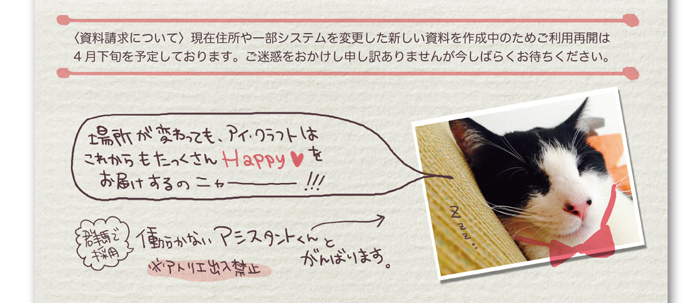 〈資料請求について〉現在住所や一部システムを変更した新しい資料を作成中のためご利用再開は
４月下旬を予定しております。ご迷惑をおかけし申し訳ありませんが今しばらくお待ちください。
場所が変わっても、アイ・クラフトは
これからもたっくさん Happy♥を
お届けするのニャー――!!!
zzz...
群馬で
採用
働かないアシスタントくんと
がんばります。
※アトリエ出入禁止